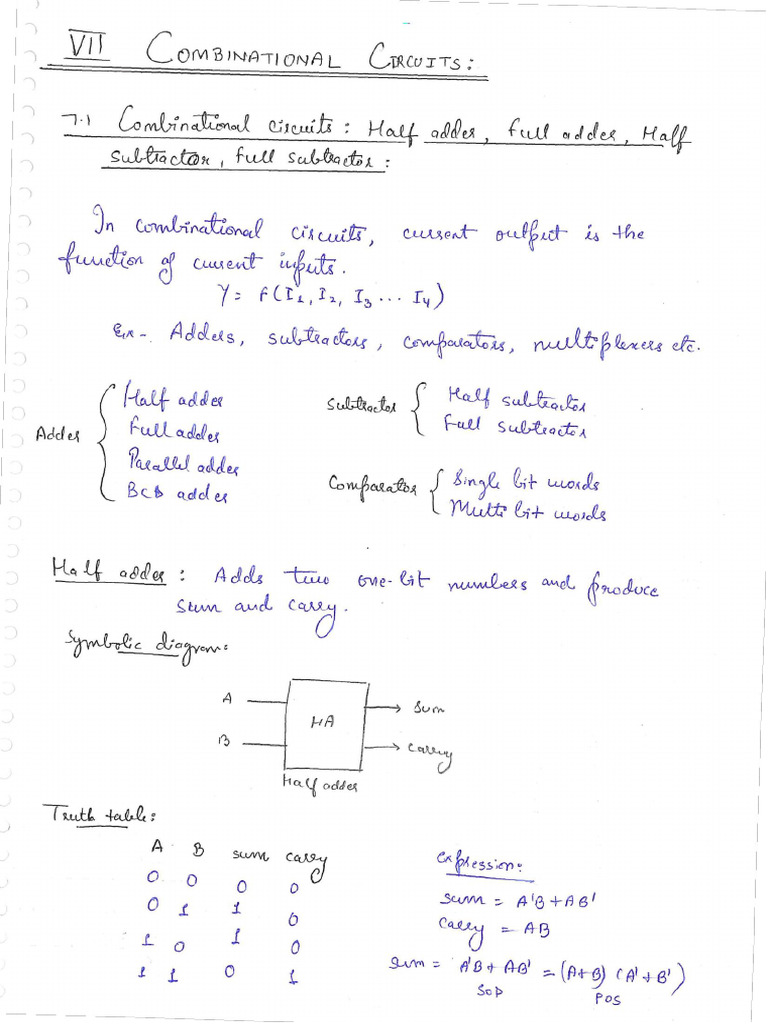 VII COMBINATIONAL CIRCUITS:
7.1 Combinational circuits: Half adder, full adder, Half
subtractor, full subtractor:
In combinational circuits, current output is the
function of current inputs.
Y = f(I1, I2, I3 ... I4)
Ex-. Adders, subtractors, comparators, multiplexers etc.
Adder { Half adder
Full adder
Parallel adder
BCD adder
Subtractor { Half subtractor
Full subtractor
Comparator { Single bit words
Multi bit words
Half adder: Adds two one-bit numbers and produce
sum and carry.
Symbolic diagram:
A
B
HA
Sum
Carry
Half adder
Truth table:
A B sum carry
0 0 0 0
0 1 1 0
1 0 1 0
1 1 0 1
Expression:
sum = A'B + AB'
Carry = AB
sum = A'B + AB' = (A+B) (A'+B')
SOP POS